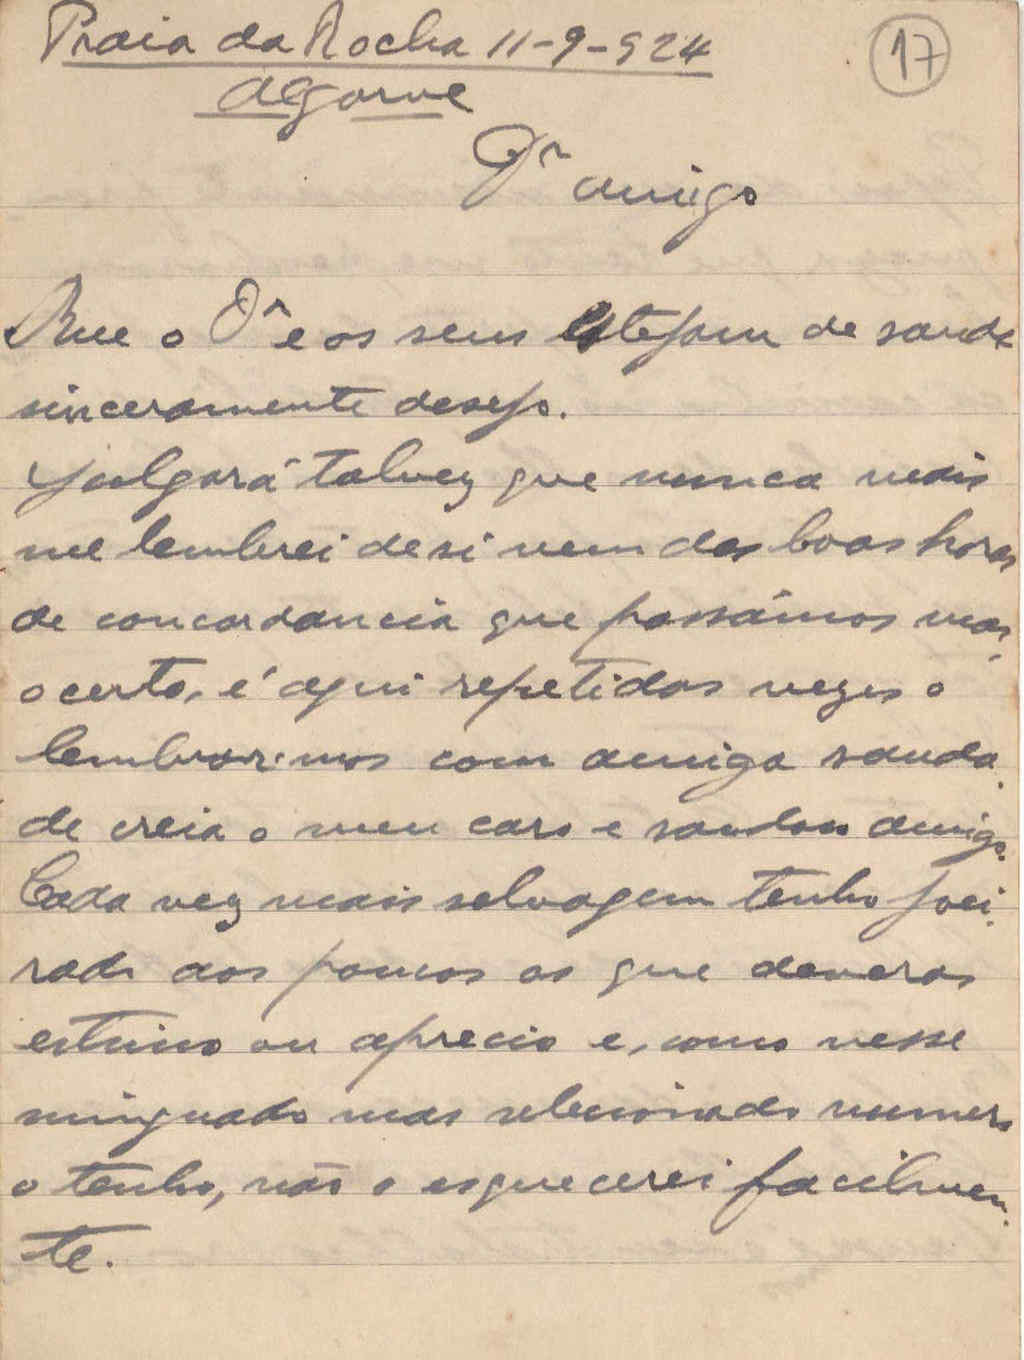 Praia da Rocha 11-9-924
17
Algarve
Dr amigo
Que o Dr e os seus estejam de saude
sinceramente desejo.
Julgará talvez que nunca mais
me lembrei de si nem das boas horas
de concordancia que passámos mas,
o certo, é aqui repetidas vezes o
lembrarmos com amiga sauda
de creia o meu caro e saudoso amigo.
Cada vez mais selvagem tenho joei
rado aos poucos os que deveras
estimo ou aprecio e, como nesse
minguado mas selecionado numero
o tenho, não o esquecerei facilmen
te.